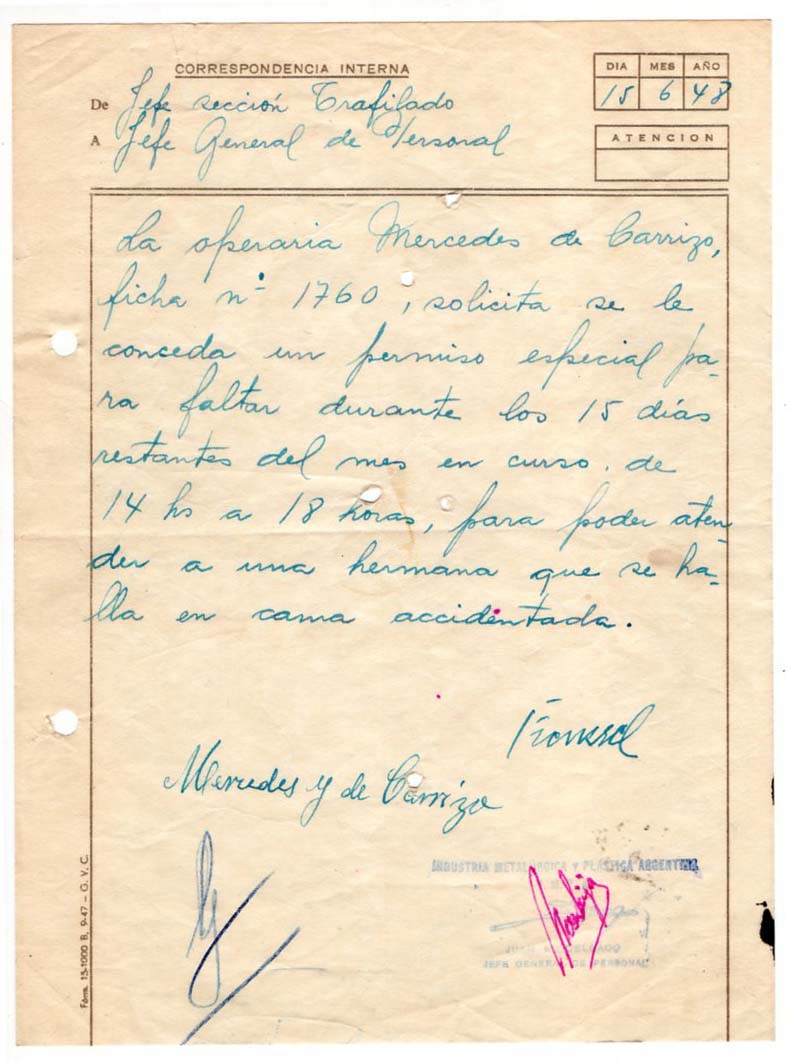 CORRESPONDENCIA INTERNA
DIA MES AÑO
15 6 48
De Jefe sección Trafilado
A Jefe General de Personal
ATENCION
La operaria Mercedes de Carrizo,
ficha nº 1760, solicita se le
conceda un permiso especial pa-
ra faltar durante los 15 días
restantes del mes en curso. de
14 hs a 18 horas, para poder aten-
der a una hermana que se ha-
lla en cama accidentada.
Mercedes y de Carrizo
INDUSTRIA METALURGICA Y PLASTICA ARGENTINA
JUAN DELGADO
JEFE GENERAL DE PERSONAL
Fórm. 13-1000 B. 9-47 - G. V. C.